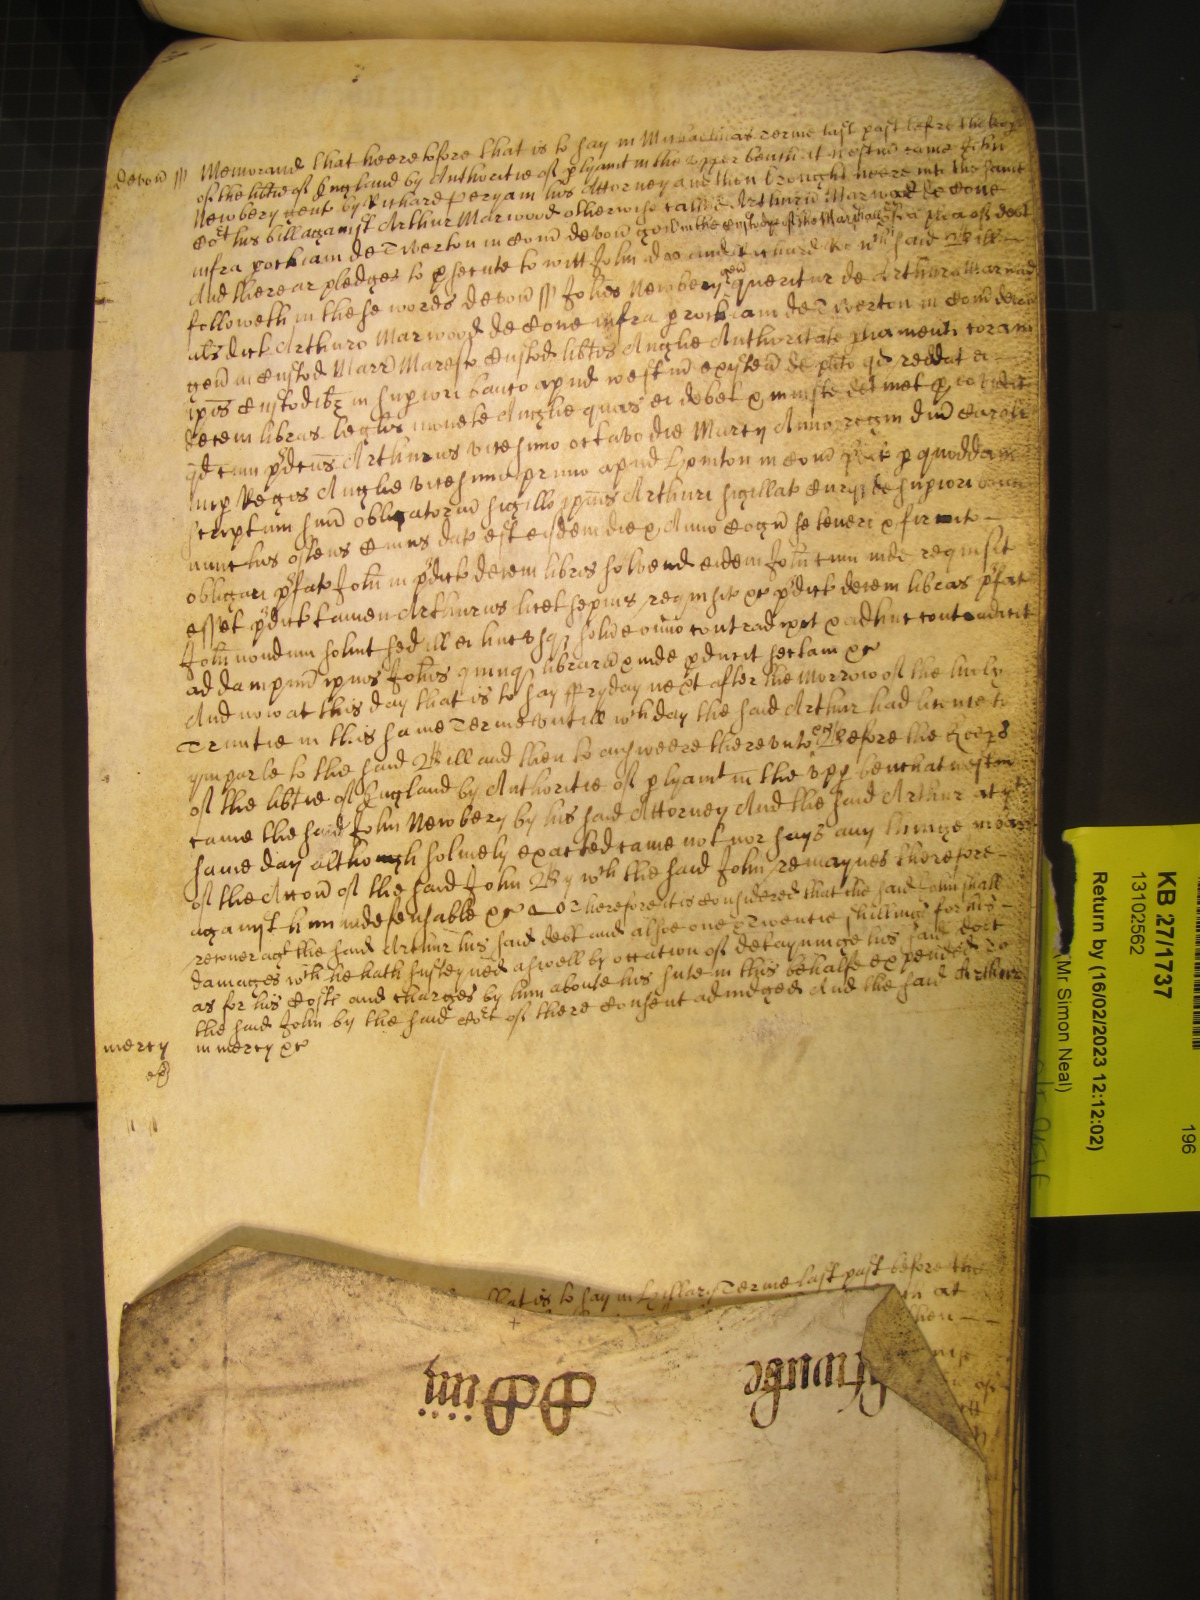 Devon ss Memorand that heeretofore that is to say in Michaelmas Terme last past before the keeps
of the libtie of England by Authoritie of plyamt in the upper bench at westm came John
Newbery gent by Richard Peryam his Attorney and then brought heere into the same
Cot his bill against Arthur Marwood otherwise called Arthur Marwood de Cone
infra pochiam de Tiverton in Com Devon gen in the Custody of the Marshall &c of a plea of debt
And there ar pledges to psecute to witt John doo and Richard roo wch said Bill
followeth in these words Devon ss Johes Newbery gen queritur de Arthuro Marwood
als dict Arthuro Marwood de Cone infra pochiam de Tiverton in Com Devon
gen in Custod Marr Maresc Custod libtis Anglie Authoritate pliamenti coram
ipis Custodibz in supiori banco apud westm existen de plito qd reddat ei
decem libras leglis monete Anglie quas ei debet & iniuste detinet p eo vidlt
qd cum pdcus Arthurus vicesimo octavo die Marcij Anno regni dni Caroli
nup Regis Anglie vicesimo primo apud in Com pdict p quoddam
scriptum suu obligatoriu sigillo ipius Arthuri sigillat Curiqz de supiori banco
nunc hic ostens cuius dat est eisdem die & Anno Cogn se teneri & firmit
obligari pfat Johi in pdict decem libris solvend eidem Johi cum inde requisit
esset pdict tamen Arthurus licet sepius requisit &c pdict decem libras pfat
Johi nondum solvit sed ill ei hucusqz solve omino contradixit & adhuc contradicit
ad dampnu ipius Johis quinqz librar & inde pducit sectam &c
And now at this day that is to say ffryday next after the Morrow of the holy
Trinitie in this same Terme untill wch day the said Arthur had licence to
ymparle to the said Bill and then to answeere thereunto &c Before the keeps
of the libtie of England by Authoritie of plyamt in the upp bench at westm
came the said John Newbery by his said Attorney And the said Arthur at yt
same day although solmely exacted came not nor says any thinge in barr
of the Accon of the said John By wch the said John remaynes therefore
against him indefensable &c Therefore it is considered that the said John shall
recouer agt the said Arthur his said debt and alsoe one & Twentie shillings for his
damages wch he hath susteyned aswell by occation of detayninge his said debt
as for his Costs and charges by him aboute his sute in this behalfe expended to
the said John by the said Cot of there Consent adiudged And the said Arthur
mercy in mercy &c
that is to say in Hillary Terme last past before the
in at
then
KB 27/1737
13102562
Return by (16/02/2023 12:12:02)
(Mr Simon Neal)
196